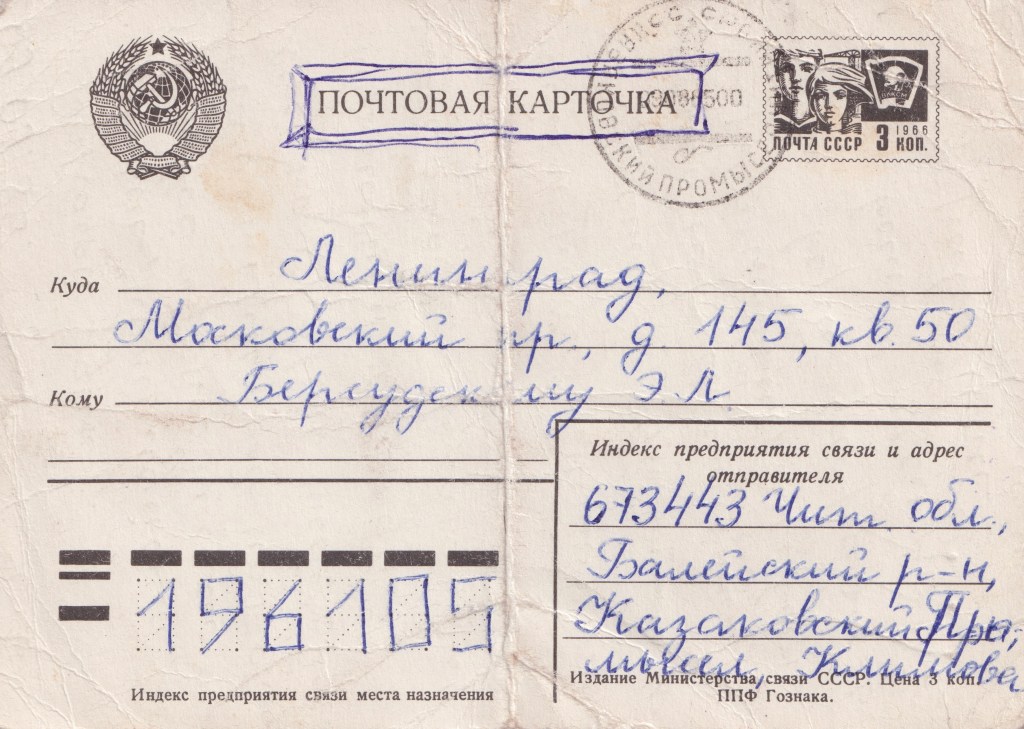 ПОЧТОВАЯ КАРТОЧКА
1966
ПОЧТА СССР 3 КОП.
СКИЙ ПРОМЫС
Куда Ленинград,
Московский пр., д. 145, кв. 50
Кому Берсудскому Э Л.
Индекс предприятия связи и адрес
отправителя
673443 Чит. обл.,
Балейский р-н,
Казаковский Про,
мысел, Климова
196105
Индекс предприятия связи места назначения
Издание Министерства связи СССР. Цена 3 коп.
ППФ Гознака.